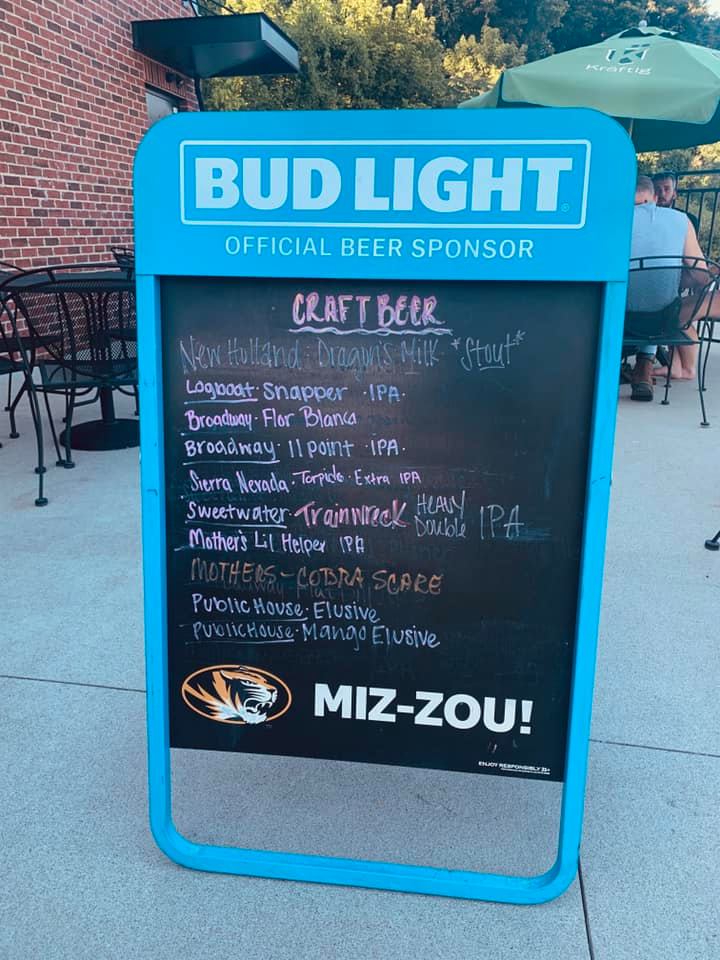 Kräftig
BUD LIGHT
OFFICIAL BEER SPONSOR
CRAFT BEER
New Holland · Dragon's Milk *Stout*
Logboat · Snapper · IPA ·
Broadway · Flor Blanca
Broadway · 11 point · IPA ·
Sierra Nevada · Torpido · Extra IPA
Sweetwater · Trainwreck HEAVY Double IPA
Mother's Lil Helper IPA
MOTHERS - COBRA SCARE
Public House · Elusive
Public House · Mango Elusive
MIZ-ZOU!
ENJOY RESPONSIBLY 21+